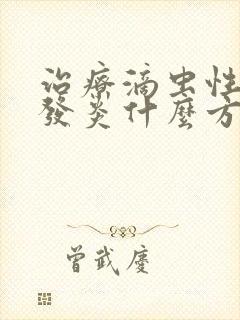 治療滴虫性
發炎什麼方
曾武慶